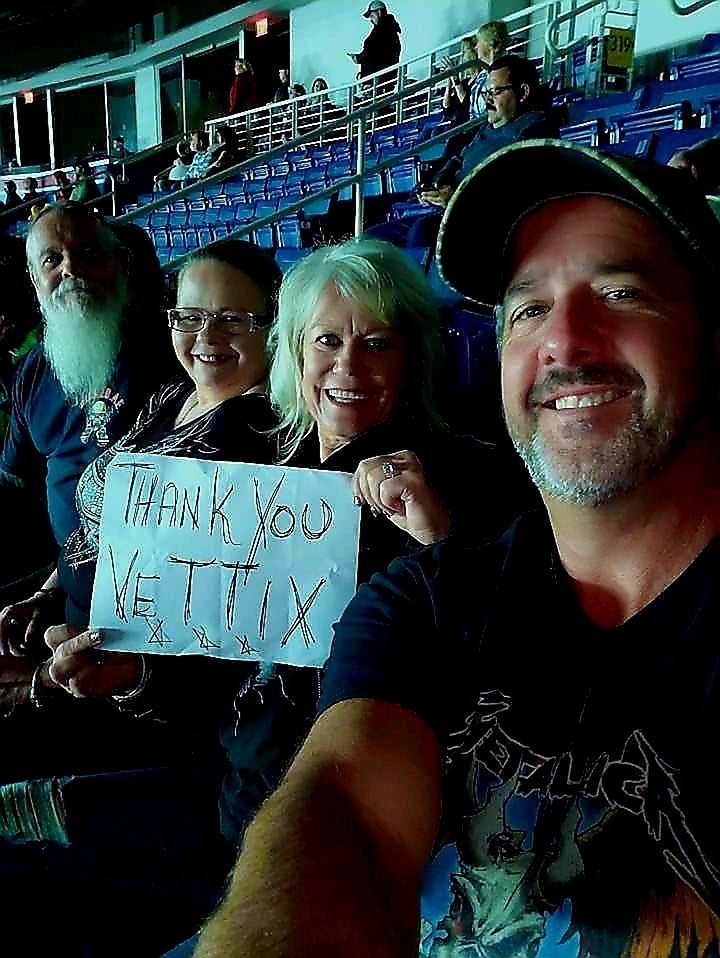 319
THANK YOU
VETTIX
METALLICA